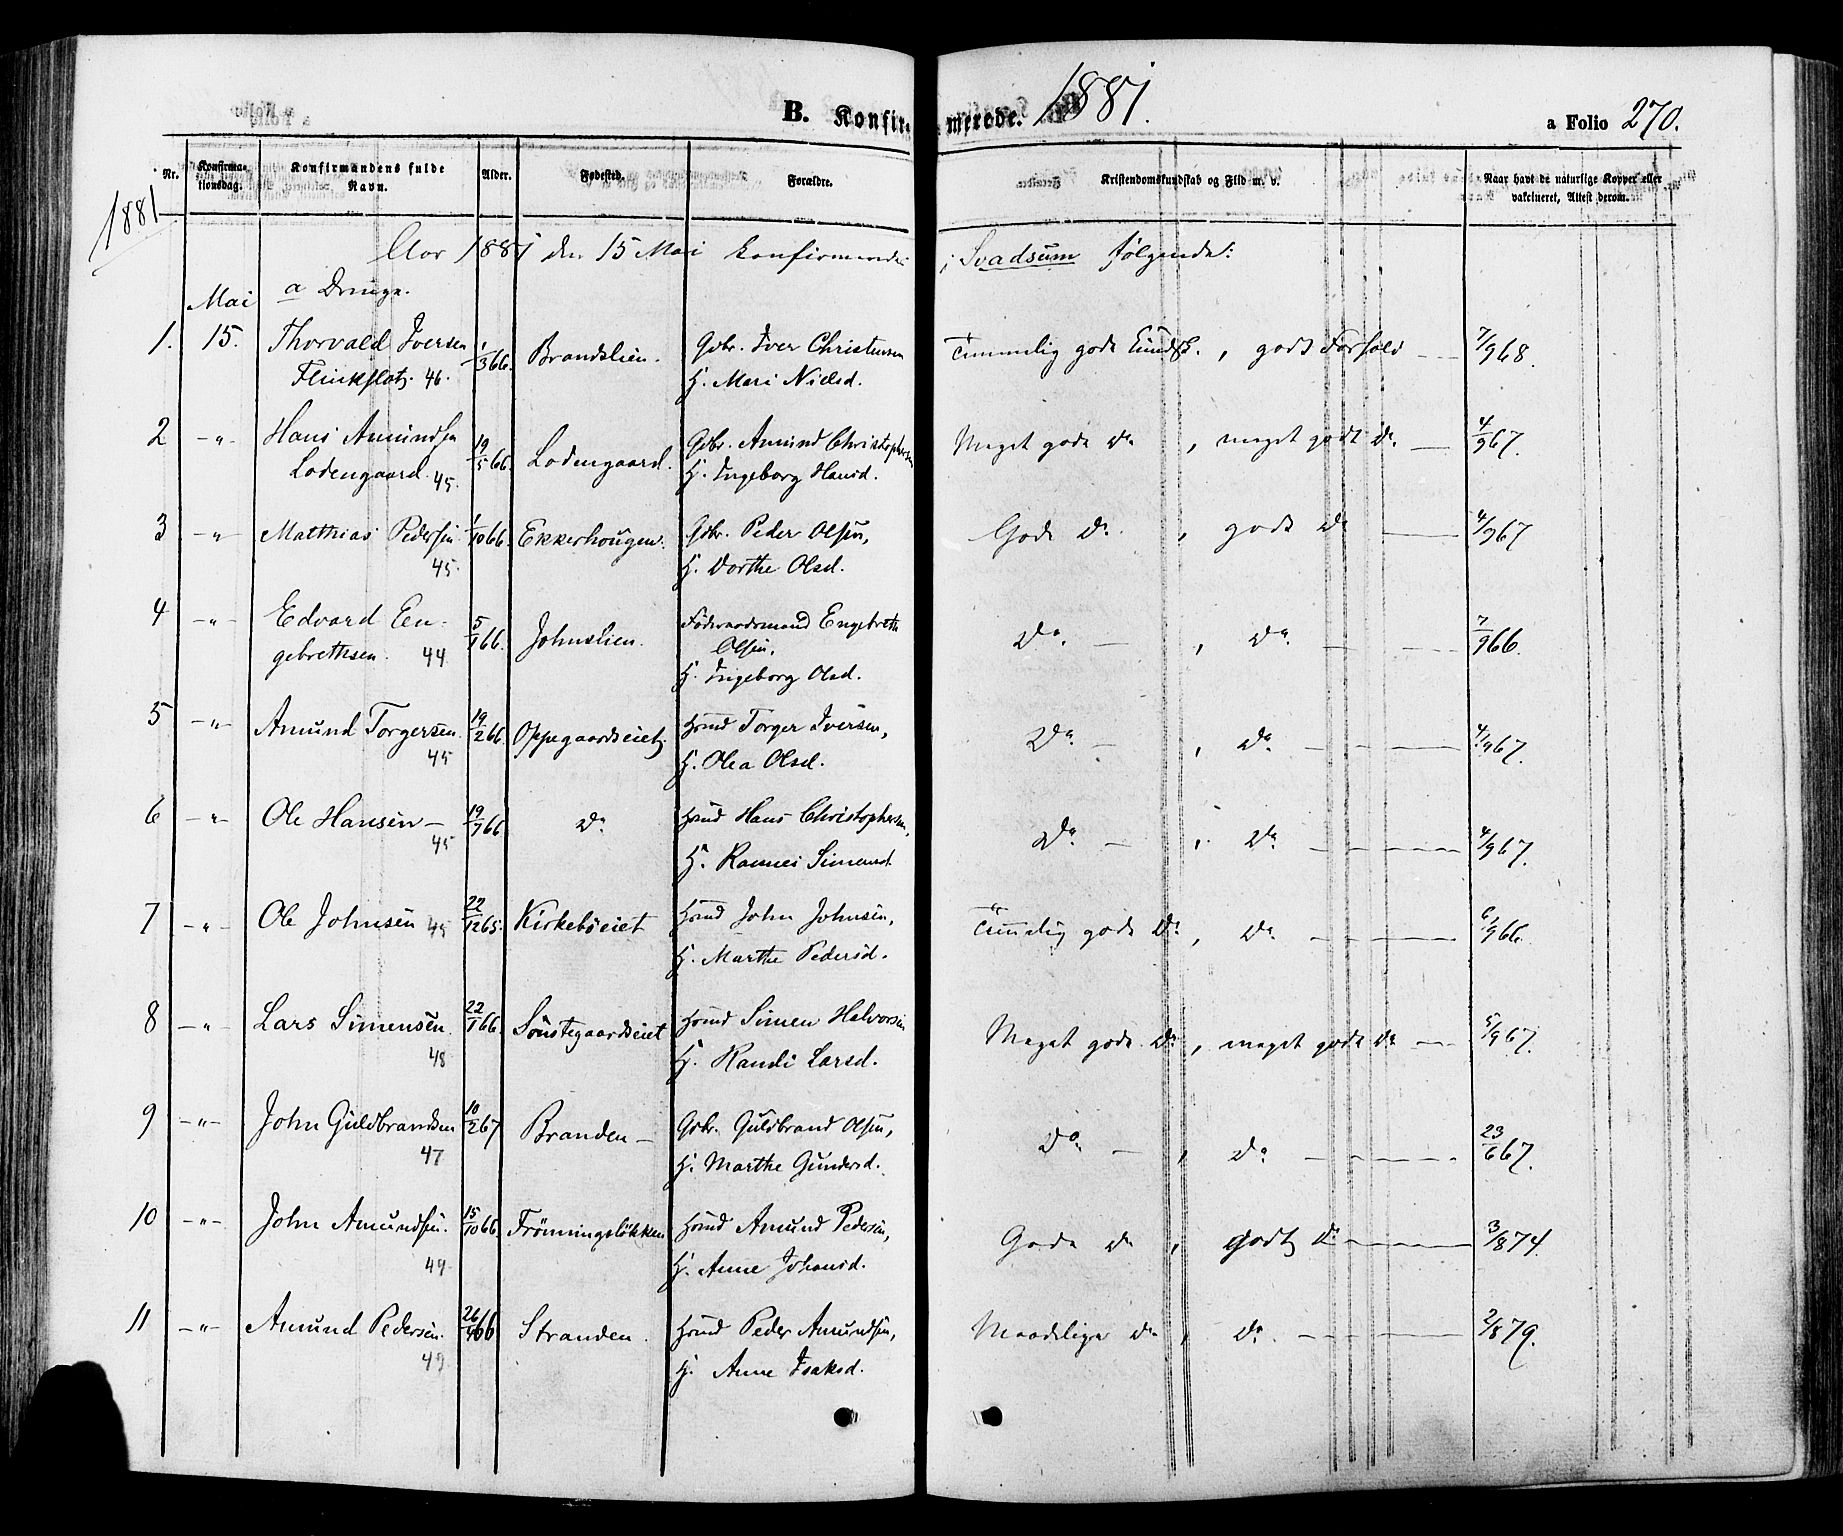 B. Konfirmerede. 1881.
a Folio 270.
1881
Nr. Konfirmationsdag. Konfirmandens fulde Navn. Alder. Fødested. Forældre. Kristendomskundskab og Flid m. v. Naar havt de naturlige Kopper eller vakcineret, Attest derom.
Aar 1881 den 15 Mai konfirmerede i Svadsum følgende:
a Drenge.
Mai
1. 15. Thorvald Iversen 1/3 66. Brandslien. Gbr. Iver Christensen Temmelig gode Kundsk., godt Forhold — 7/9 68.
46. H. Mari Nielsd.
2 —„— Hans Amundsen 19/5 66. Lodengaard. Gbr. Amund Christophersen Meget gode Do, meget godt Do — 4/9 67.
Lodengaard 45. H. Ingeborg Hansd.
3 —„— Matthias Pedersen 1/10 66. Ekkerhougen. Gbr. Peder Olsen, Gode Do, godt Do — 4/9 67
45. H. Dorthe Olsd.
4 —„— Edvard En- 5/1 66. Johnslien. Føderaadsmand Engebreth Do. —, Do. — 7/9 66.
gebrethsen. 44 Olsen,
H. Ingeborg Olsd.
5 —„— Amund Torgersen. 19/2 66. Oppegaardseiet Hmd Torger Iversen, Do. —, Do. — 4/9 67.
45 H. Olea Olsd.
6 —„— Ole Hansen — 19/7 66 Do Hmd Hans Christophersen, Do. —, Do. — 4/9 67.
45 H. Simensd.
7 —„— Ole Johnsen 45 22/12 65. Kirkebøeiet Hmd John Johnsen, Temmelig gode Do, Do. — 6/9 66.
H. Marthe Pedersd.
8 —„— Lars Simensen. 22/1 66. Sønstegaardseiet Hmd Simen Halvorsen Meget gode Do, meget godt Do — 5/9 67.
48 H. Randi Larsd.
9 —„— John Guldbrandsen 10/2 67 Branden — Gbr. Guldbrand Olsen, Do. —, Do. — 23/6 67.
47 H. Marthe Gundersd.
10 —„— John Amundsen. 15/10 66. Frønningsløkken Hmd Amund Pedersen, Gode Do, godt Do — 3/8 74.
49 H. Anne Johansd.
11 —„— Amund Pedersen. 26/4 66 Stranden. Hmd Peder Amundsen, Maadelige Do, Do. — 2/8 79.
49 H. Anne Isaksd.